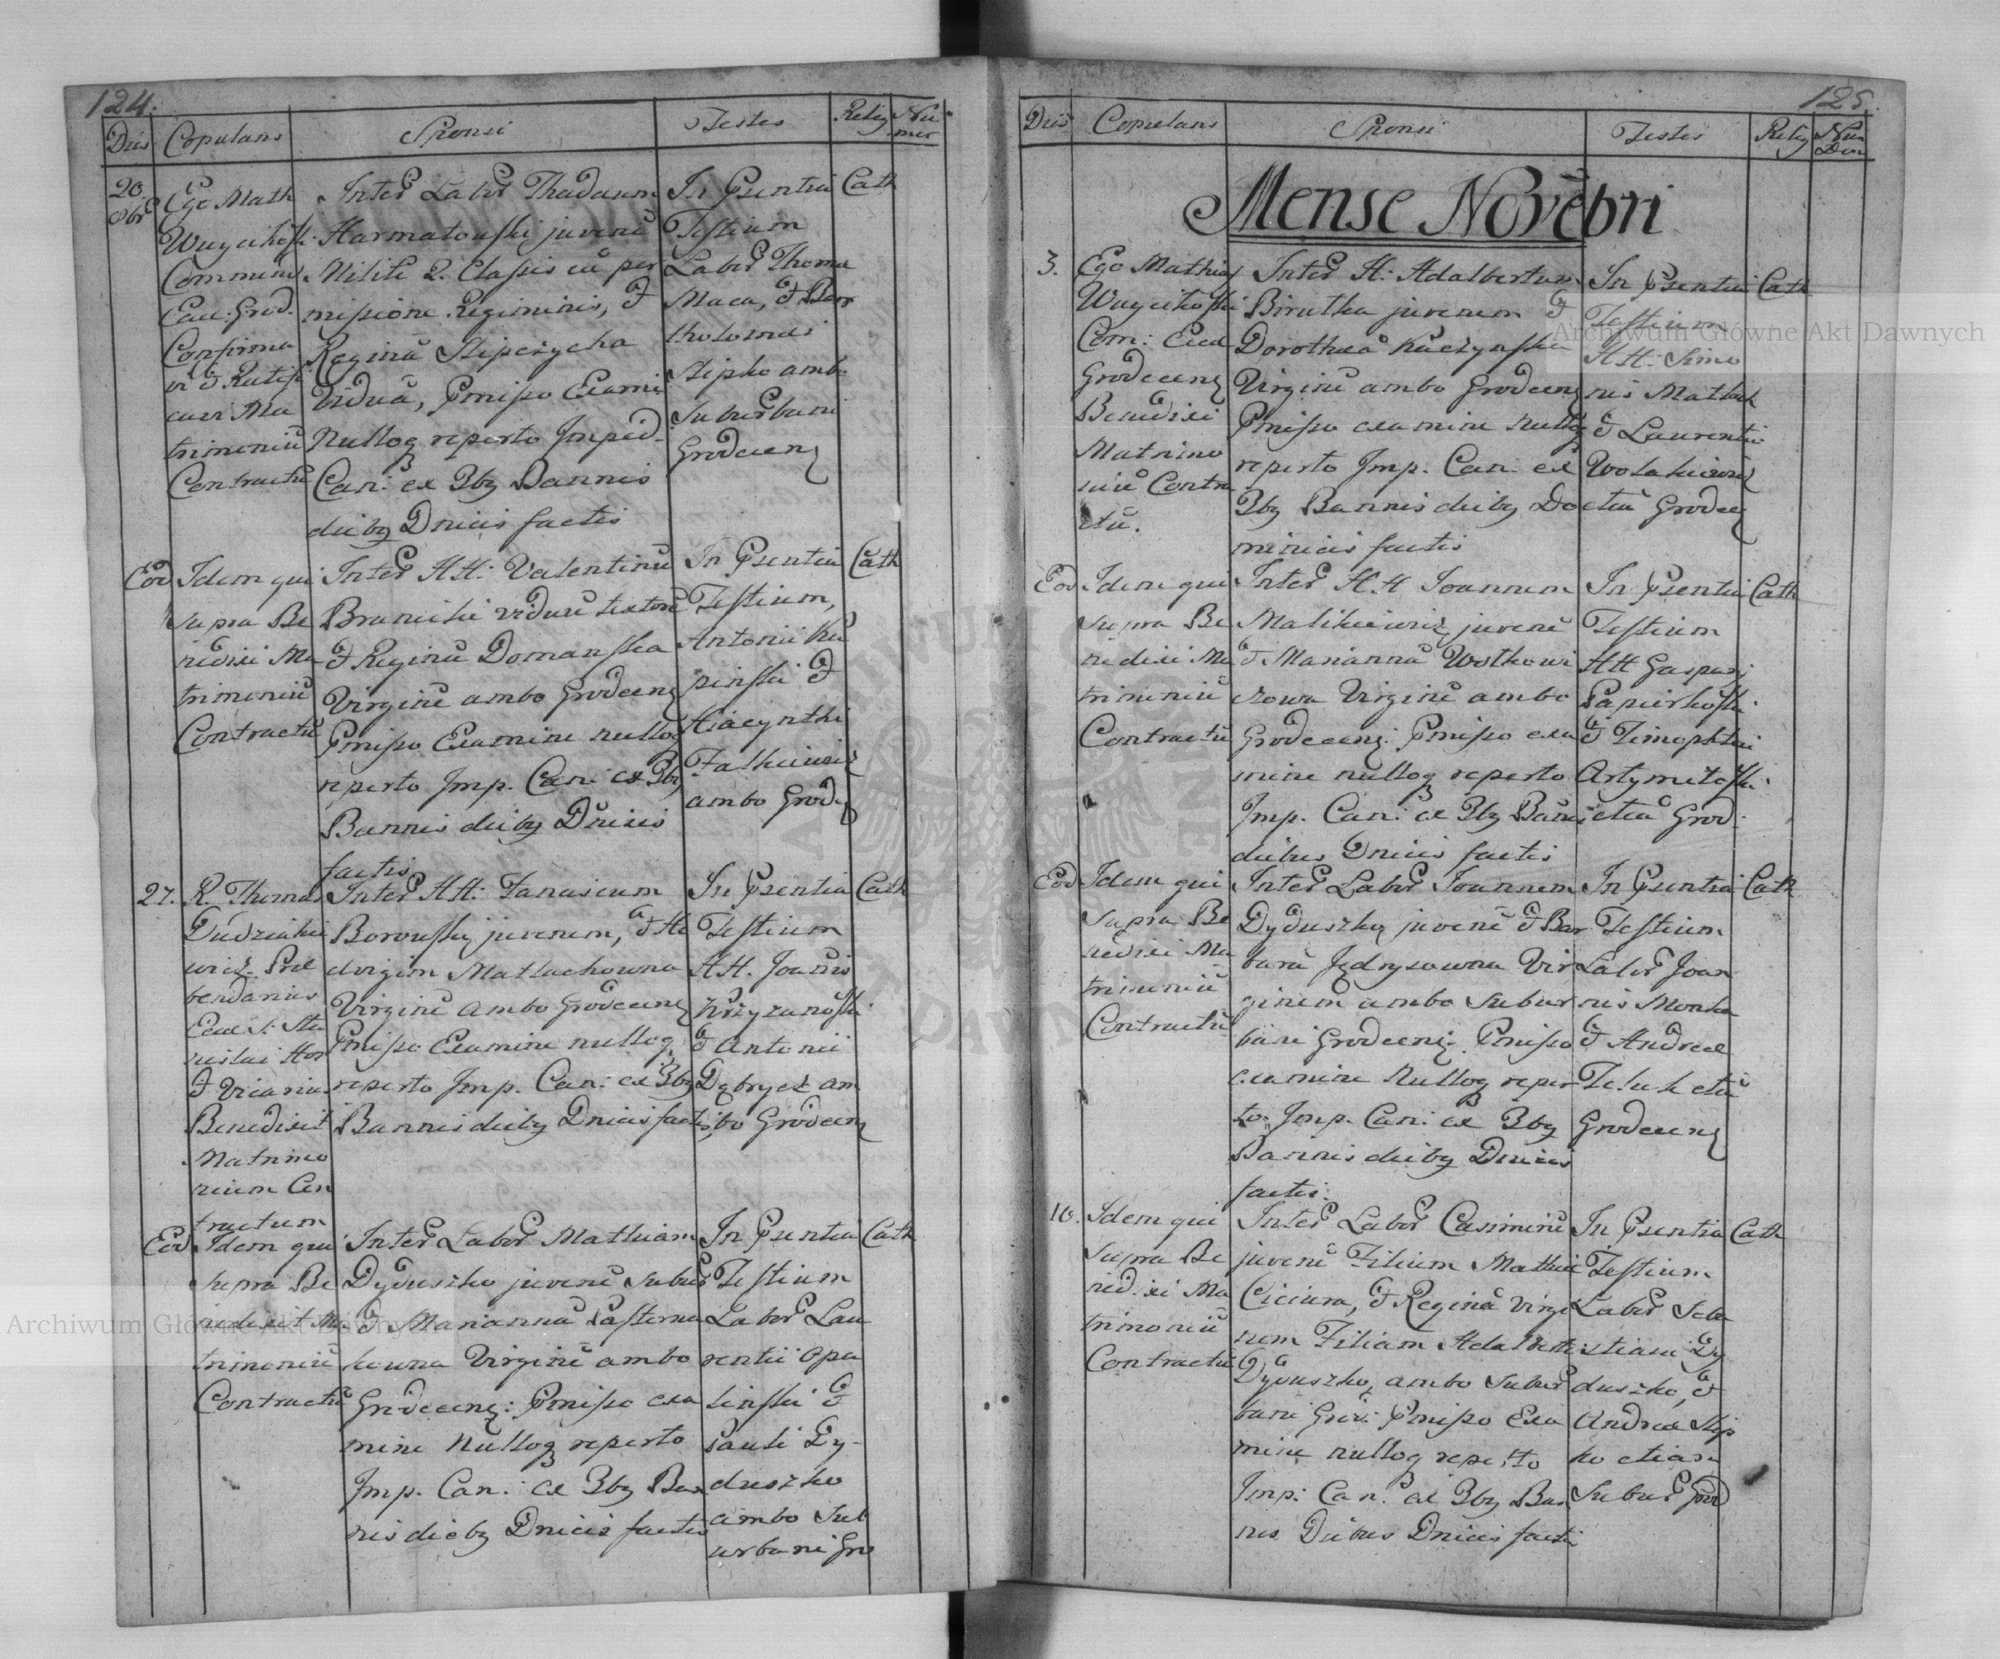 124.
Dies Copulans Sponsi Testes Relig Nu
mer
20
8bris
Ego Math
Woycikoski
Commend
Eccl: Grod.
Confirma
vi et Ratifi
cavi Ma
trimoniū
Contractū
Inter Labor Thadaeum
Harmatouski juvenē
Milite 2. Classis cū per
missione Regiminis, et
Reginā Slipczycha
Viduā, Pmisso Exami
Nulloq reperto Imped.
Can: ex 3bq Bannis
diebq Dnicis factis
In Psentia
Testium
Labor Thoma
Maca, et Bar
tholomei
Slipko ambo
Suburbani
Grodecen
Cath
Eod
Idem qui
supra Be
nedixi Ma
trimoniū
Contractū
Inter HH: Valentinū
Branicki viduū textorē
et Reginā Domanska
Virginē ambo Grodecen
Pmisso Examine nulloq
reperto Imp. Can: ex 3bq
Bannis diebq Dnicis
factis
In Psentia
Testium,
Antonii Ku
pinski et
Hiacynthi
Falkiewicz
ambo Grod
Cath
27.
R. Thomas
Dudziakie
wicz Pre
bendarius
Eccl S: Sta
nislai Hor
et Vicarius
Benedixit
Matrimo
nium Con
tractum
Inter HH: Tanascum
Borouski juvenem, et He
dvigim Matlachowna
Virginē ambo Grodecen
Pmisso Examine nulloq
reperto Imp. Can: ex 3bq
Bannis diebq Dnicis factis
In Psentia
Testium
HH. Joānis
Krzyzanoski
et Antonii
Dąbrycz am
bo Grodecen
Cath
Eod
Idem qui
supra Be
nedixit Ma
trimoniū
Contractū
Inter Labor Mathiam
Dyduszko juvenē subur
et Mariannā Pasterna
kowna Virginē ambo
Grodecen: Pmisso exa
mine Nulloq reperto
Imp. Can: ex 3bq Ban
nis diebq Dnicis factis
In Psentia
Testium
Labor Lau
rentii Opa
linski et
Pauli Dy-
duszko
ambo Sub
urbani Gro
Cath
125.
Dies Copulans Sponsi Testes Relig Num
Dom
Mense Novēbri
3.
Ego Mathias
Woycikoski
Com: Eccl
Grodecen
Benedixi
Matrimo
niū Contra
ctū.
Inter H: Adalbertum
Birutka juvenem et
Dorotheā Kuczynska
Virginē ambo Grodecen
Pmisso examine nulloq
reperto Imp. Can: ex
3bq Bannis diebq Do
minicis factis
In Psentia
Testium
HH: Simo
nis Matlak
et Laurentii
Wolakiewicz
etiā Grodec
Cath
Eod
Idem qui
supra Be
nedixi Ma
trimoniū
Contractū
Inter H.H Joannem
Malikiewicz juvenē
et Mariannā Wolkowi
czowa Virginē ambo
Grodecen: Pmisso exa
mine nulloq reperto
Imp. Can: ex 3bq Bañis
diebus Dnicis factis
In Psentia
Testium
HH Gaspari
Papierkoski
et Timophtei
Artymczoski
etiā Grod:
Cath
Eod
Idem qui
supra Be
nedixi Ma
trimoniū
Contractū
Inter Labor Joannem
Dyduszko juvenē et Bar
barā Jędrysowna Vir
ginem ambo subur
bani Grodecen: Pmisso
examine Nulloq reper
to Imp. Can: ex 3bq
Bannis diebq Dnicis
factis.
In Psentia
Testium
Labor Joan
nis Monka
et Andreae
Teluk etiā
Grodecen
Cath
10.
Idem qui
supra Be
nedixi Ma
trimoniū
Contractū
Inter Labor Casimirū
juvenē Filium Mathiae
Ciciura, et Reginā Virgi
nem Filiam Adalberti
Dyduszko, ambo subur
bani Grod: Pmisso Exa
mine nulloq reperto
Imp: Can: ex 3bq Ban
nis Diebus Dnicis factis
In Psentia
Testium
Labor Seba
stiani Dy
duszko, et
Andreae Slip
ko etiam
Subur Grod
Cath
Archiwum Główne Akt Dawnych
Archiwum Główne Akt Dawnych